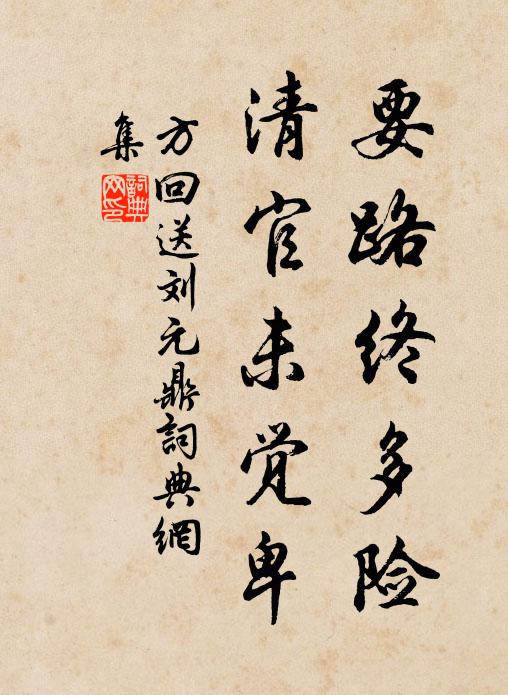 要路终多险
清官未觉卑
方回送刘元鼎詞典網
集
詞典網印